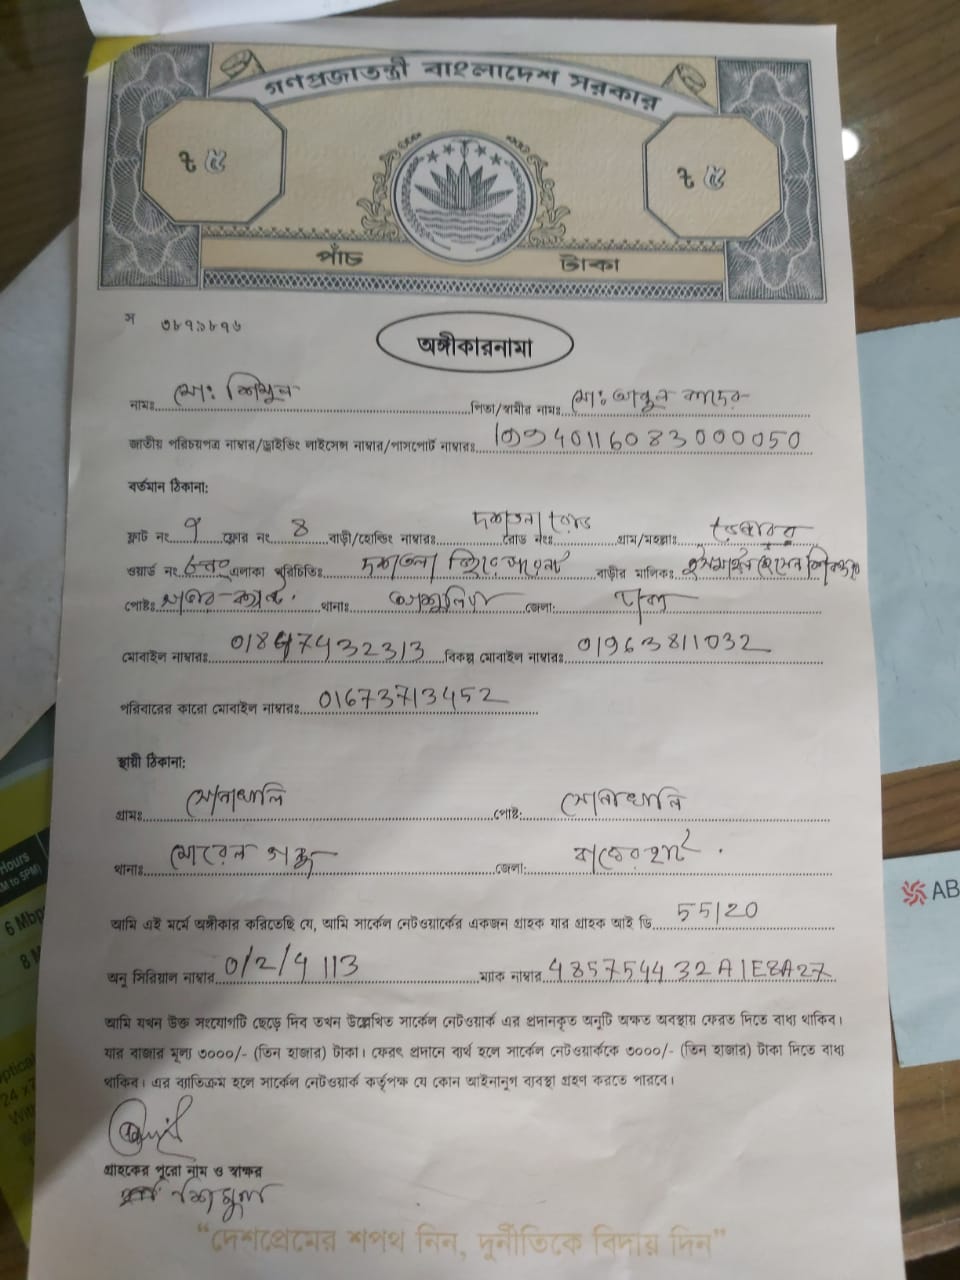 গণপ্রজাতন্ত্রী বাংলাদেশ সরকার
৳ ৫
৳ ৫
পাঁচ টাকা
স ৩৮৭৯৮৭৬
অঙ্গীকারনামা
নামঃ মোঃ শিমুল পিতা/স্বামীর নামঃ মোঃ আবুল কাদের
জাতীয় পরিচয়পত্র নাম্বার/ড্রাইভিং লাইসেন্স নাম্বার/পাসপোর্ট নাম্বারঃ 19940116083000050
বর্তমান ঠিকানা:
ফ্লাট নং ফ্লোর নং বাড়ী/হোল্ডিং নাম্বারঃ রোড নংঃ গ্রাম/মহল্লাঃ
ওয়ার্ড নং এলাকা পরিচিতিঃ বাড়ীর মালিকঃ
পোষ্টঃ থানাঃ আশুলিয়া জেলা: ঢাকা
মোবাইল নাম্বারঃ বিকল্প মোবাইল নাম্বারঃ 01963811032
পরিবারের কারো মোবাইল নাম্বারঃ 01673713452
স্থায়ী ঠিকানা:
গ্রামঃ সোনাখালি পোষ্ট: সোনাখালি
থানাঃ মোরেলগঞ্জ জেলা: বাগেরহাট
আমি এই মর্মে অঙ্গীকার করিতেছি যে, আমি সার্কেল নেটওয়ার্কের একজন গ্রাহক যার গ্রাহক আই ডি 55120
অনু সিরিয়াল নাম্বার 0/2/4 113 ম্যাক নাম্বার 485754432A1E8A27
আমি যখন উক্ত সংযোগটি ছেড়ে দিব তখন উল্লেখিত সার্কেল নেটওয়ার্ক এর প্রদানকৃত অনুটি অক্ষত অবস্থায় ফেরত দিতে বাধ্য থাকিব।
যার বাজার মূল্য ৩০০০/- (তিন হাজার) টাকা। ফেরৎ প্রদানে ব্যর্থ হলে সার্কেল নেটওয়ার্ককে ৩০০০/- (তিন হাজার) টাকা দিতে বাধ্য
থাকিব। এর ব্যতিক্রম হলে সার্কেল নেটওয়ার্ক কর্তৃপক্ষ যে কোন আইনানুগ ব্যবস্থা গ্রহণ করতে পারবে।
গ্রাহকের পুরো নাম ও স্বাক্ষর
শিমুল
“দেশপ্রেমের শপথ নিন, দুর্নীতিকে বিদায় দিন”
Hours
6 Mbp
8 M
24 x7
AB